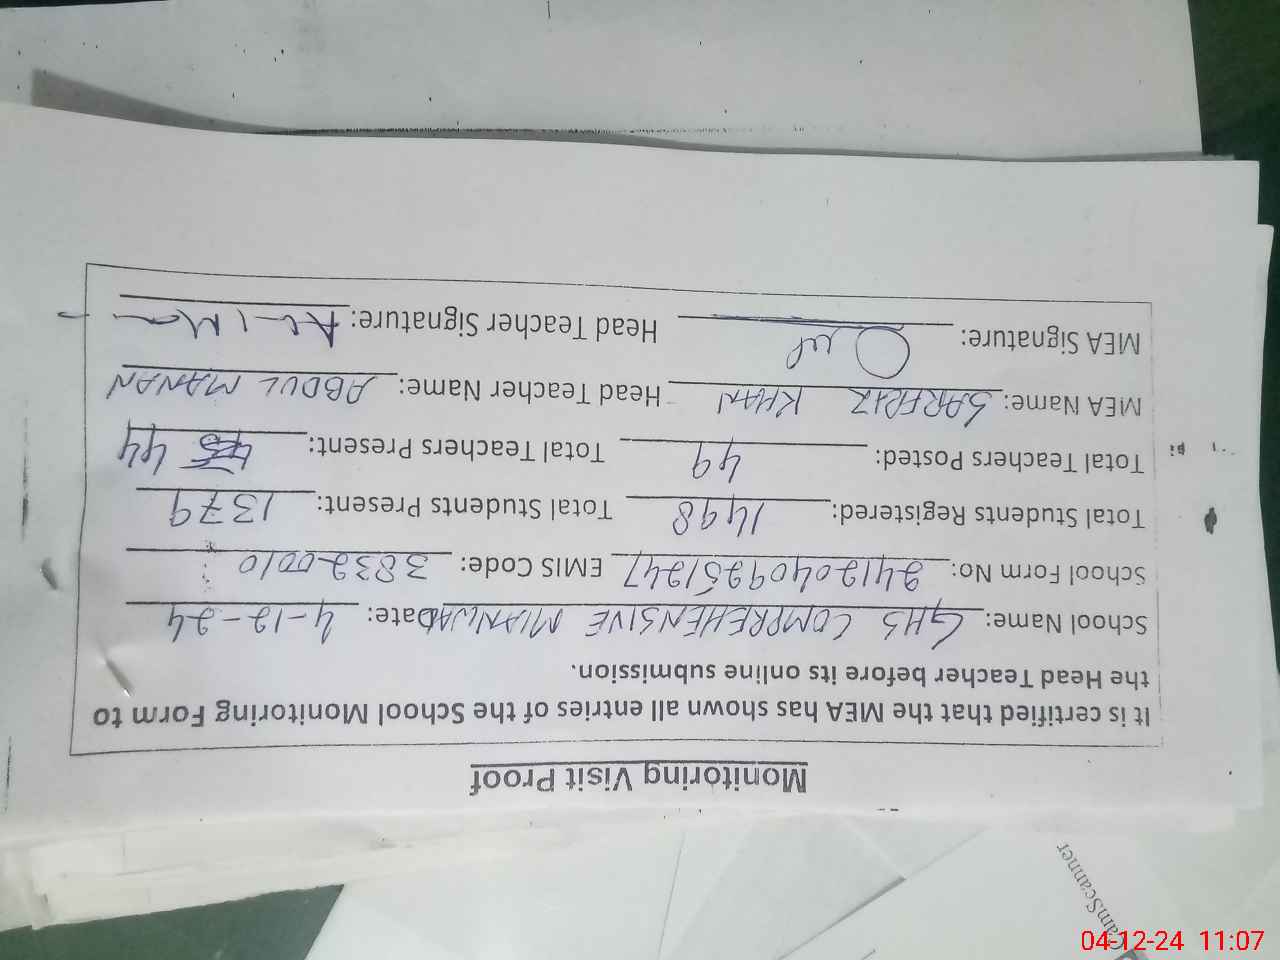 Monitoring Visit Proof
It is certified that the MEA has shown all entries of the School Monitoring Form to
the Head Teacher before its online submission.
School Name: GHS COMPREHENSIVE MIANWALI Date: 4-12-24
School Form No: 24120409251247 EMIS Code: 38320010
Total Students Registered: 1498 Total Students Present: 1379
Total Teachers Posted: 49 Total Teachers Present: 44
MEA Name: SARFRAZ KHAN Head Teacher Name: ABDUL MANAN
MEA Signature: Head Teacher Signature:
CamScanner
04-12-24 11:07